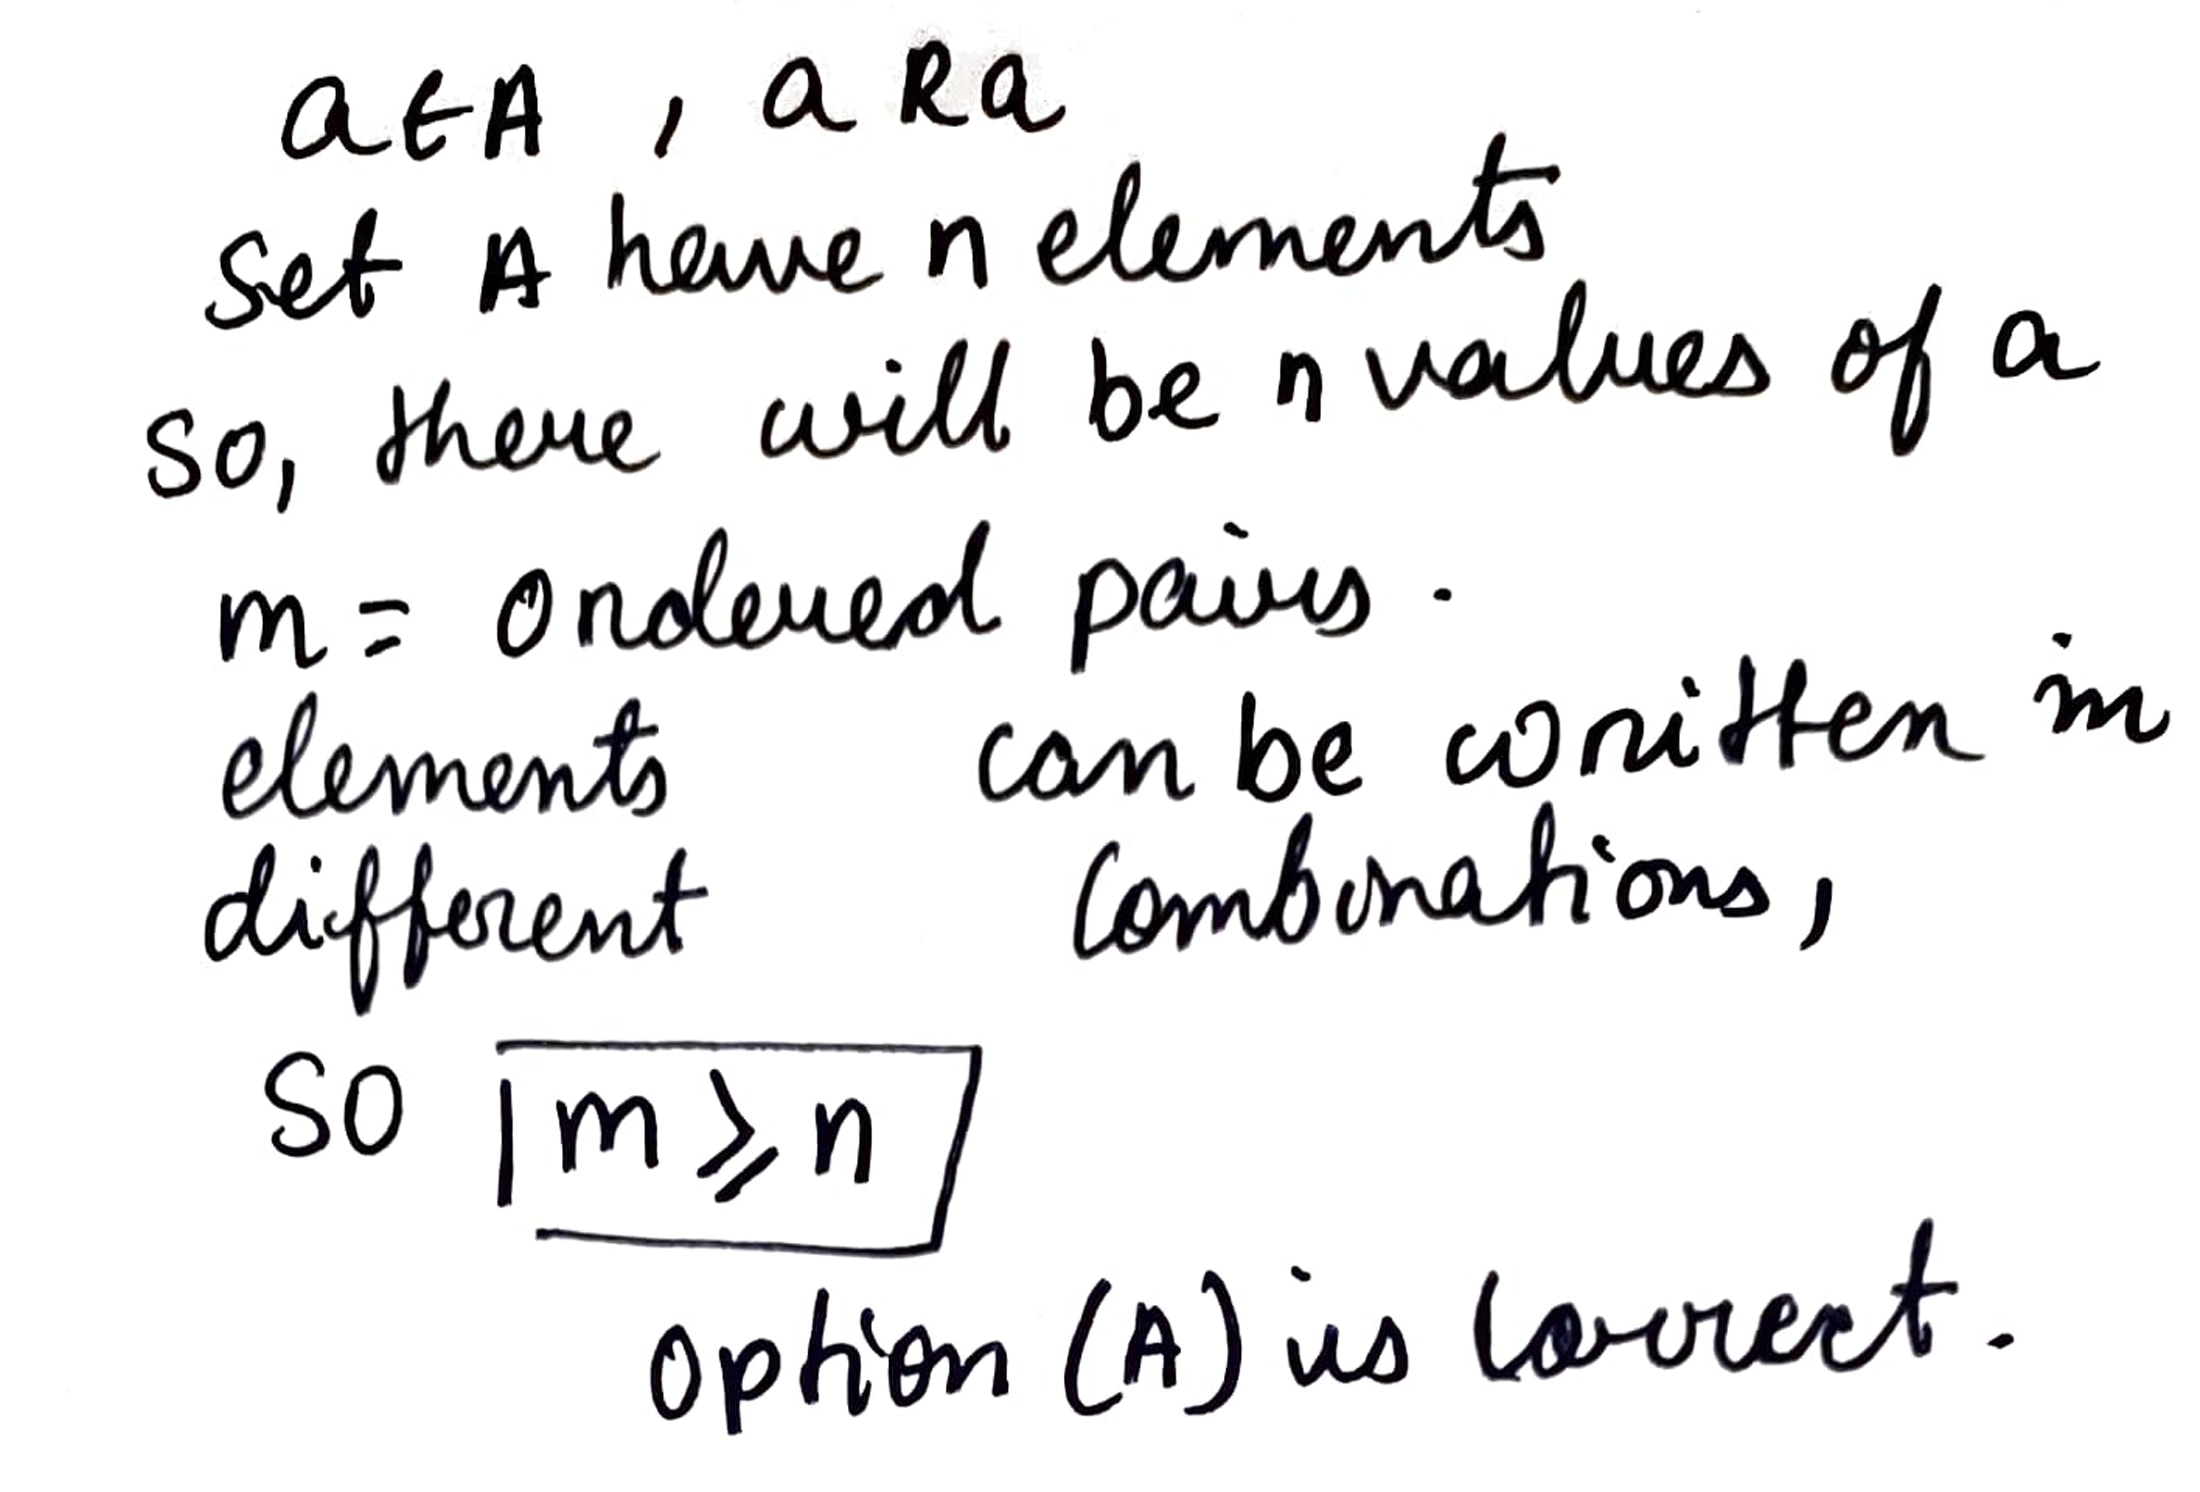 a ∈ A , a R a
Set A have n elements
so, there will be n values of a
m = Ordered pairs .
elements can be written in
different Combinations,
SO m ⩾ n
option (A) is Correct.